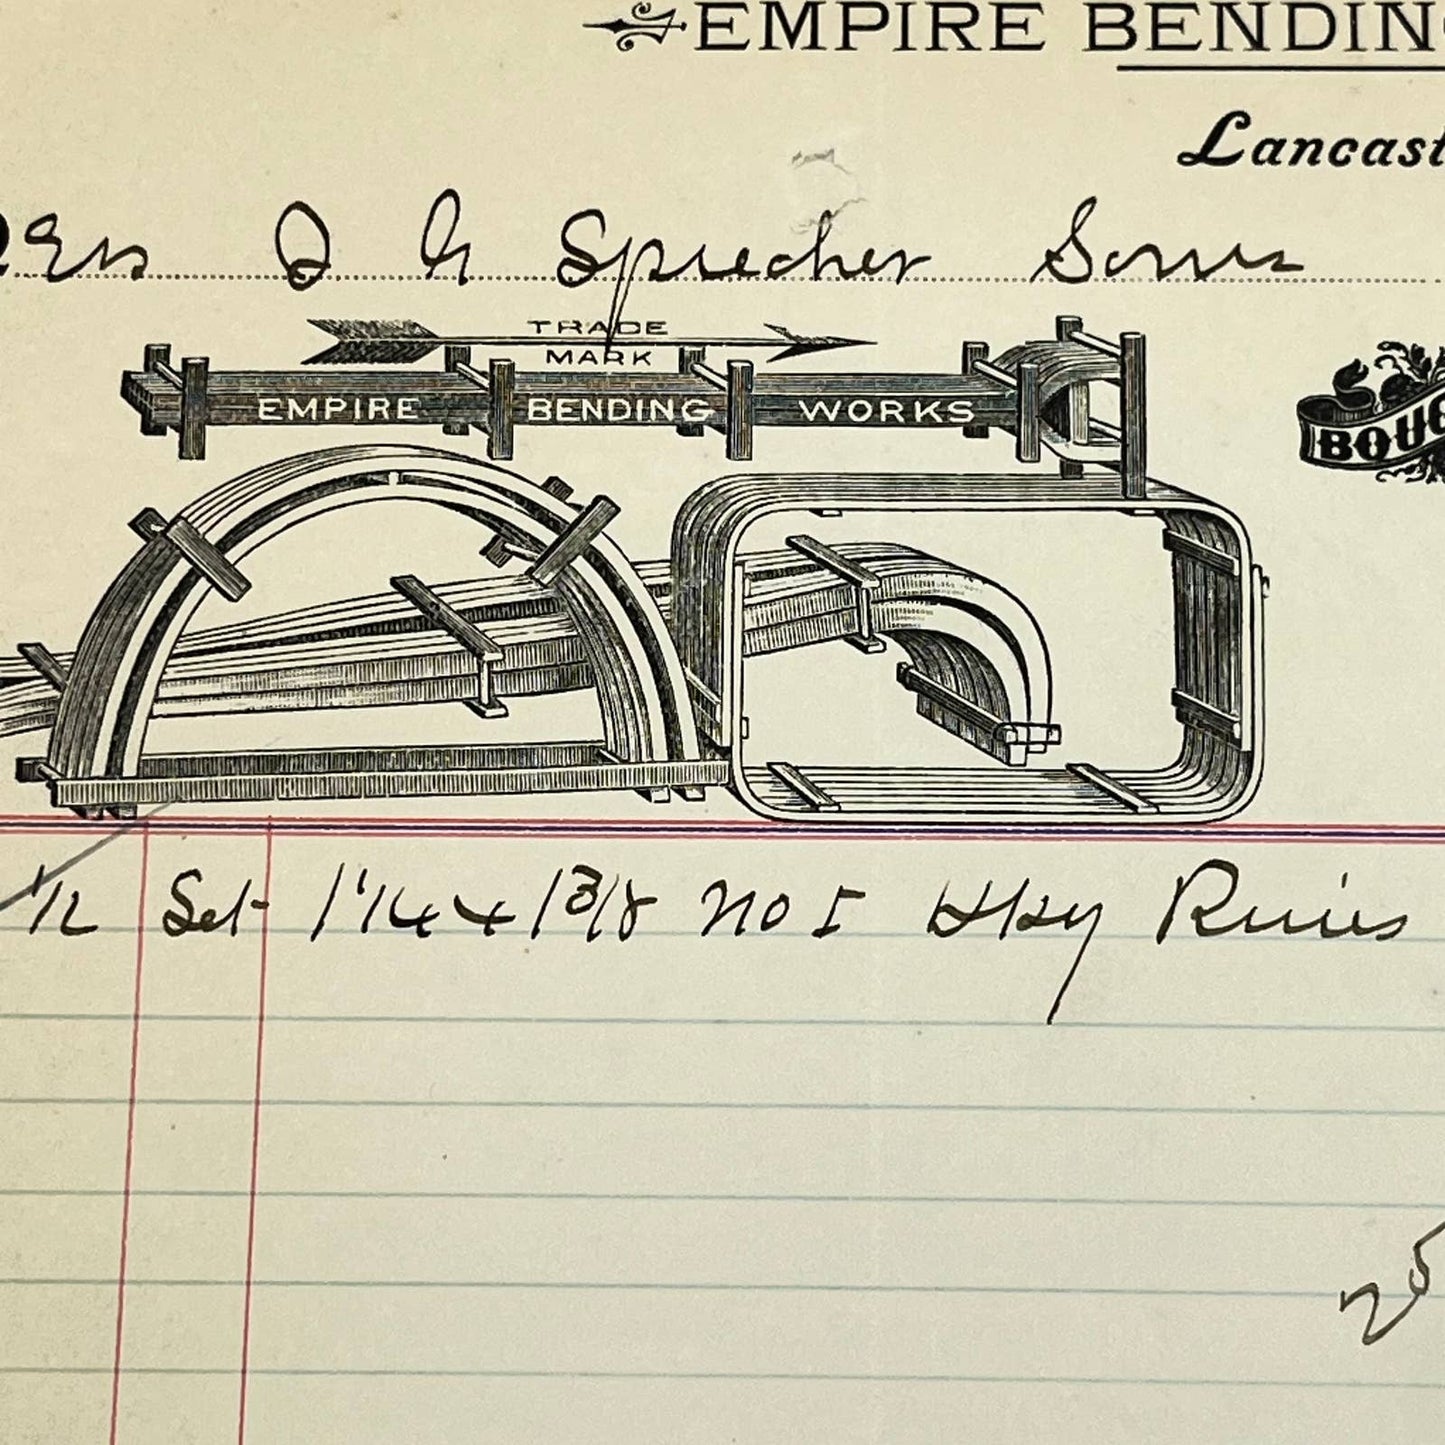 EMPIRE BENDING
Lancast
Sprecher Sons
TRADE
MARK
EMPIRE BENDING WORKS
BOUG
1/2 Set 1 1/4 x 1 3/8 No I Hky Rims
25